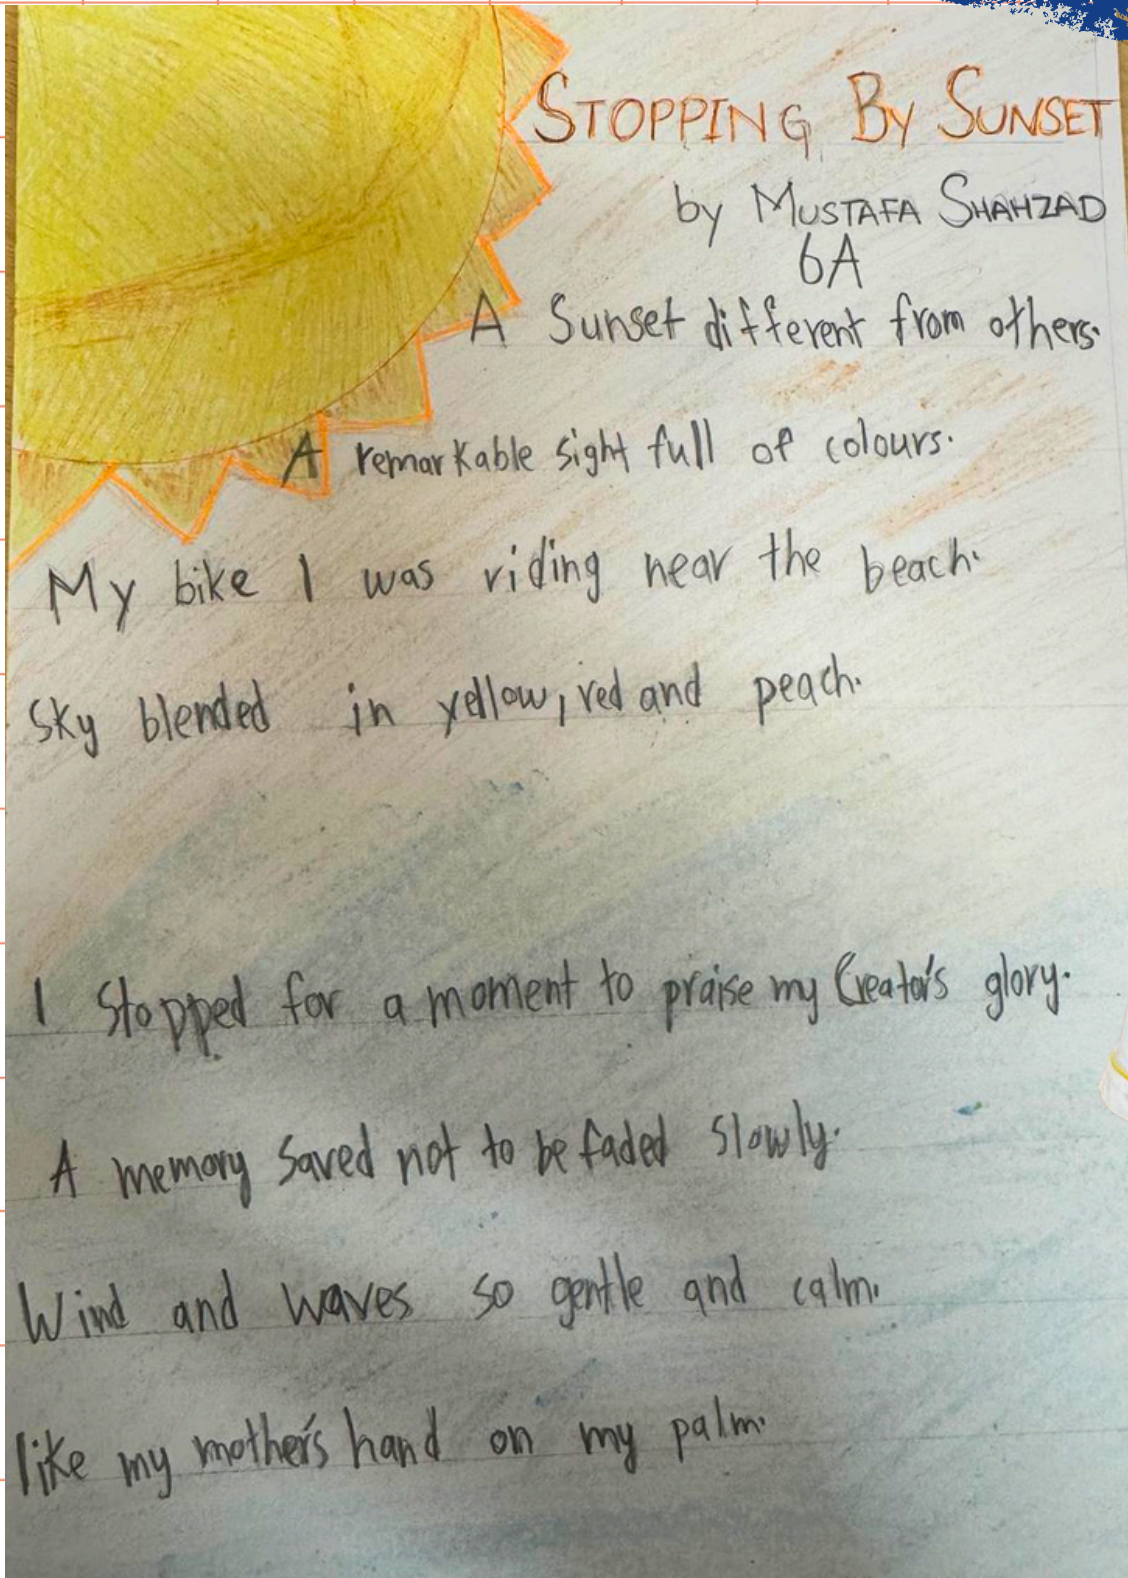 STOPPING BY SUNSET
by MUSTAFA SHAHZAD
6A
A Sunset different from others.
A remarkable sight full of colours.
My bike I was riding near the beach.
Sky blended in yellow, red and peach.
I stopped for a moment to praise my Creator's glory.
A memory saved not to be faded slowly.
Wind and waves so gentle and calm.
like my mother's hand on my palm.